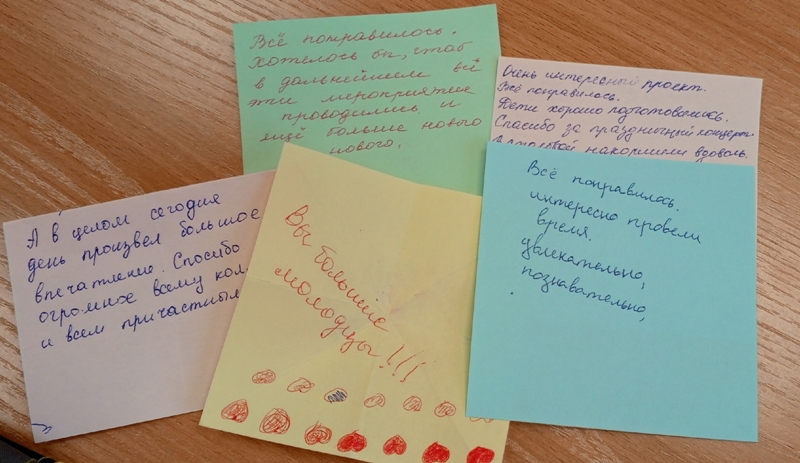 Всё понравилось.
Хотелось бы, чтоб
в дальнейшем все
эти мероприятие
проводились и
ещё больше нового
нового.
Очень интересный проект.
Всё понравилось.
Дети хорошо подготовились.
Спасибо за праздничный концерт.
накормили вдоволь.
А в целом сегодня
день произвел большое
впечатление. Спасибо
огромное всему кол
и всем причастным
Вы большие
молодцы!!!
Всё понравилось.
интересно провели
время.
увлекательно,
познавательно,